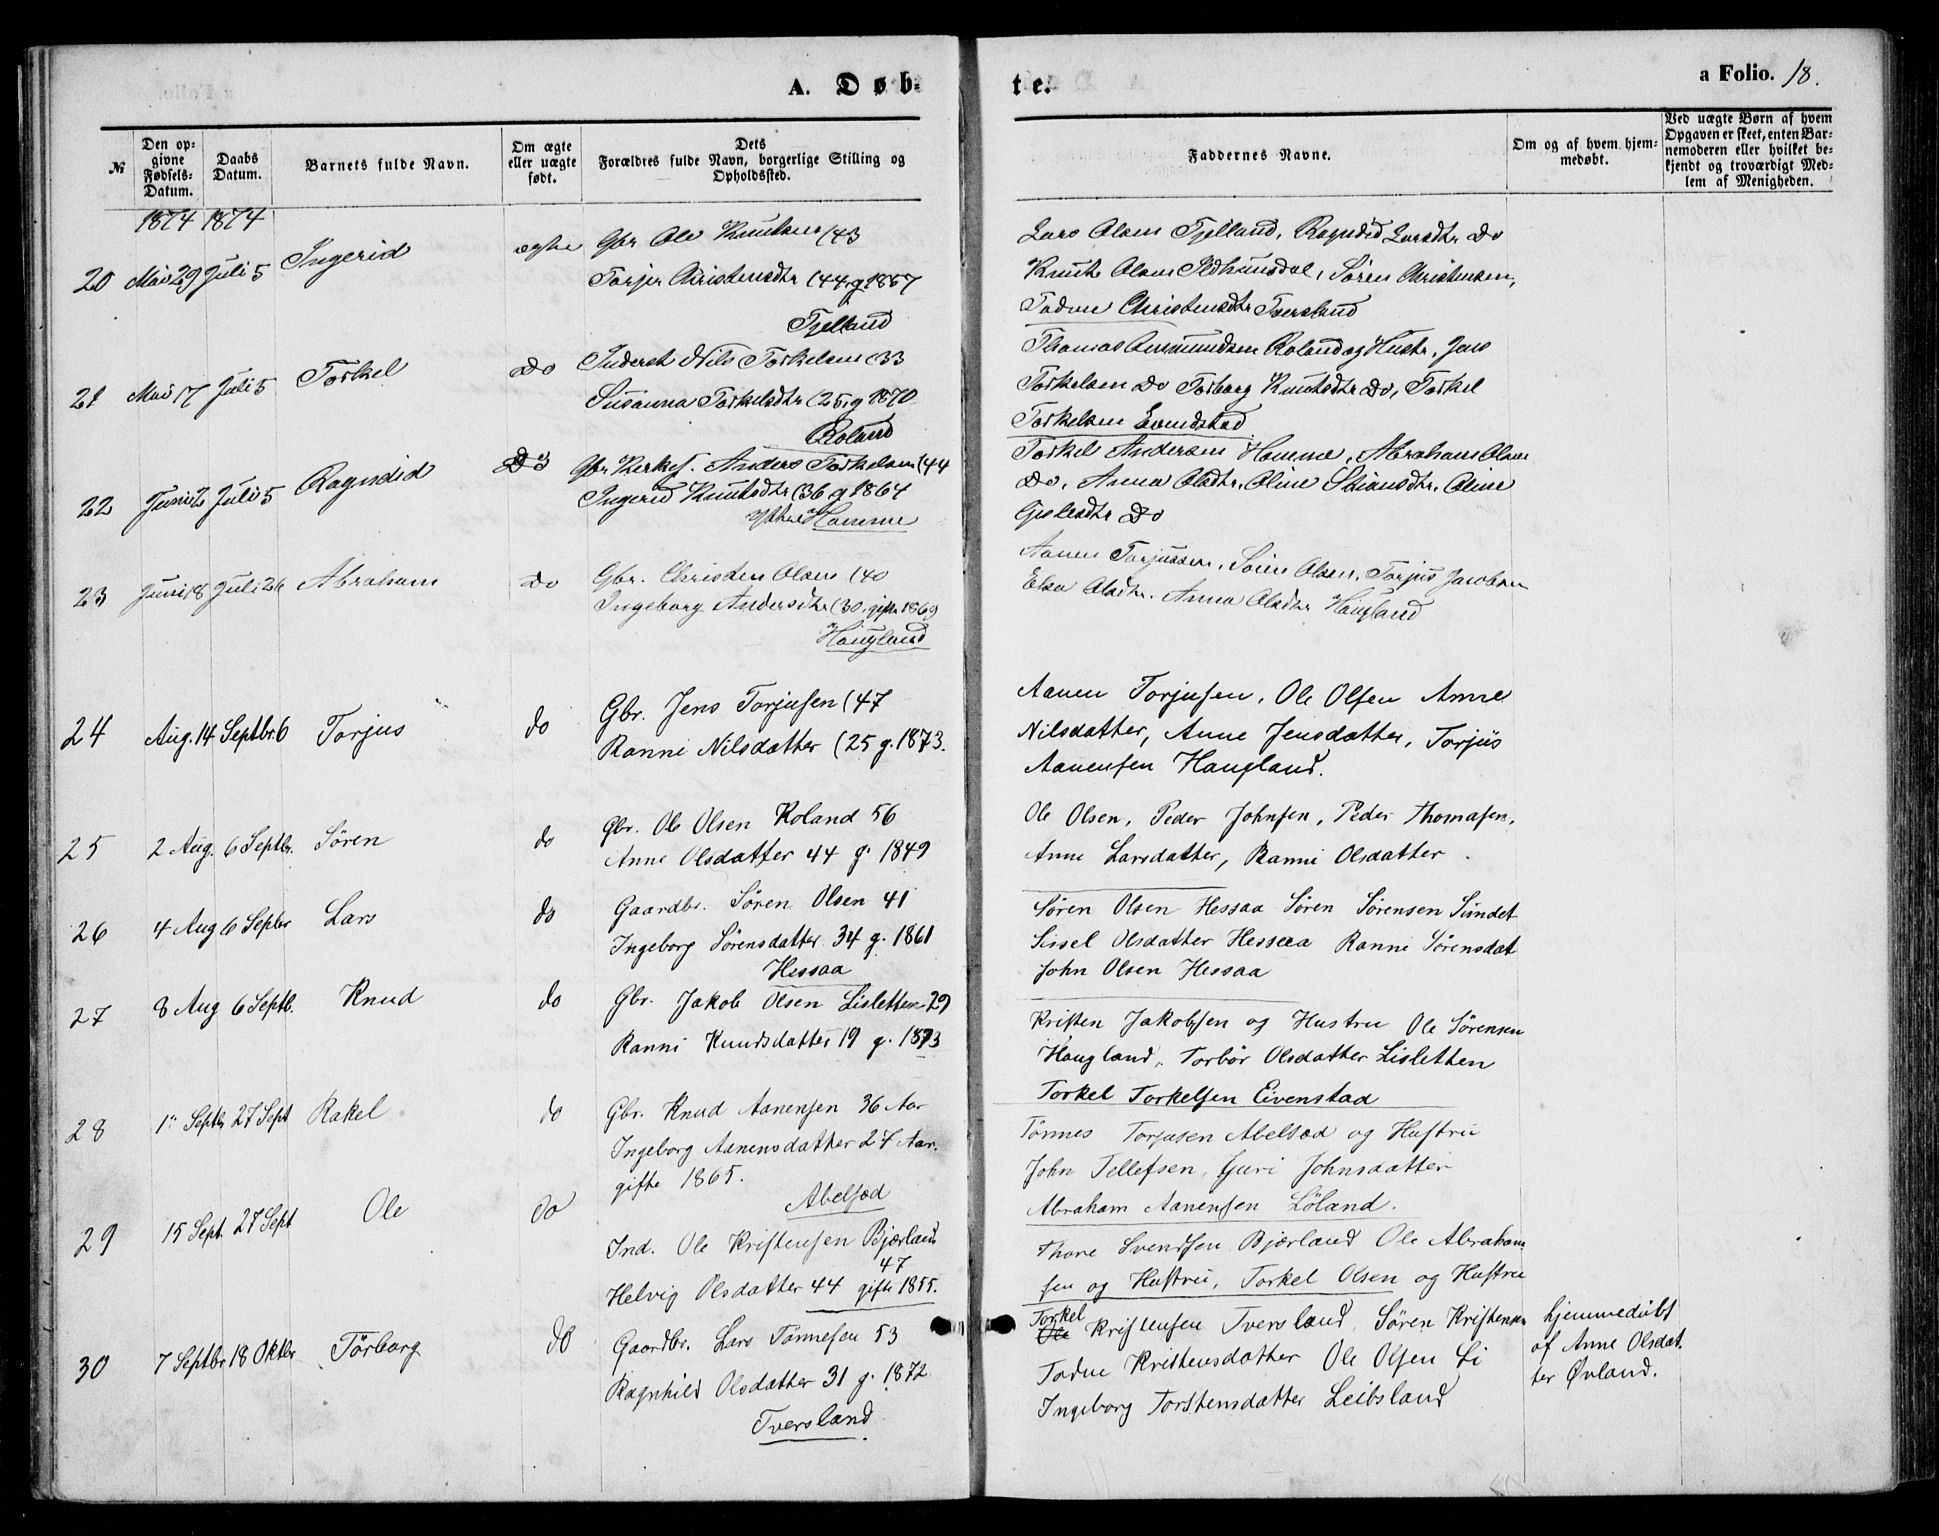 A. Døbte.
a Folio. 18.
№
Den opgivne Fødsels-Datum.
Daabs Datum.
Barnets fulde Navn.
Om ægte eller uægte født.
Dets Forældres fulde Navn, borgerlige Stilling og Opholdssted.
Faddernes Navne.
Om og af hvem hjemmedøbt.
Ved uægte Børn af hvem Opgaven er skeet, enten Barnemoderen eller hvilket bekjendt og troværdigt Medlem af Menigheden.
1874 1874
20 Mai 29 Juli 5 Ingerid ægte Gbr Ole Knutsen (43
Torjer Christensdtr (44 g 1857
Tjelland
Lars Olsen Tjelland, Ragndid Larsdtr Do
Knut Olsen Ildhunsdal, Sören Christensen,
Todne Christensdtr Tversland
21 Mai 17 Juli 5 Torkel Do Inderst Nils Torkelsen (33
Susanna Torkelsdtr (25 g 1870
Roland
Thomas Aamundsen Roland og Hustr, Jens
Torkelsen Do Torborg Knutsdtr Do, Torkel
Torkelsen Evindstad
22 Juni 2 Juli 5 Ragndid Do Gbr Kirkes. Anders Torkelsen (44
Ingerid Knutsdtr (36 g 1864
Ythre Homme
Torkel Andersen Homme, Abraham Olsen
Do, Anna Olsdtr, Oline Stiansdtr, Oline
Gislesdtr Do
23 Juni 18 Juli 26 Abraham Do Gbr. Christen Olsen (40
Ingeborg Andersdtr (30, gift 1869
Haugland
Aanen Torjussen, Sören Olsen, Torjus Jacobsen
Elsa Olsdtr. Anna Olsdtr Haugland
24 Aug. 14 Septbr. 6 Torjus do Gbr. Jens Torjusen (47
Ranni Nilsdatter (25 g. 1873.
Aanen Torjusen, Ole Olsen Anne
Nilsdatter, Anne Jensdatter, Torjus
Aanensen Haugland.
25 2 Aug. 6 Septbr. Sören do Gbr. Ole Olsen Roland 56
Anne Olsdatter 44 g. 1849
Ole Olsen, Peder Johnsen, Peder Thomasen,
Anne Larsdatter, Ranni Olsdatter.
26 4 Aug 6 Sepbr Lars do Gaardbr. Sören Olsen 41
Ingeborg Sörensdatter 34 g. 1861
Hessaa
Sören Olsen Hessaa Sören Sörensen Sundet
Sissel Olsdatter Hessaa Ranni Sörensdat
John Olsen Hessaa
27 8 Aug 6 Septb. Knud do Gbr. Jakob Olsen Lisletten 29
Ranni Knudsdatter 19 g. 1873
Kristen Jakobsen og Hustru Ole Sörensen
Haugland, Torbör Olsdatter Lisletten
Torkel Torkelsen Eivenstad
28 1ᵗᵉ Septbr 27 Sept Rakel do Gbr. Knud Aanensen 36 Aar
Ingeborg Aanensdatter 27 Aar.
gifte 1865.
Abelsæd
Tönnes Torjusen Abelsæd og Hustru
John Tellefsen, Guri Johnsdatter
Abraham Aanensen Löland.
29 15 Sept. 27 Sept Ole do Ind. Ole Kristensen Bjærland
47
Helvig Olsdatter 44 gifte 1855.
Thore Svendsen Bjærland Ole Abraham
sen og Hustru, Torkel Olsen og Hustru
30 7 Septbr 18 Oktbr Törborg do Gaardbr. Lars Tönnesen 53
Ragnhild Olsdatter 31 g. 1872
Tversland
Torkel
Ole Kristensen Tversland, Sören Kristensen
Todne Kristensdatter Ole Olsen Li
Ingeborg Torstensdatter Leibsland
hjemmedøbt
af Anne Olsdat
ter Øvland.